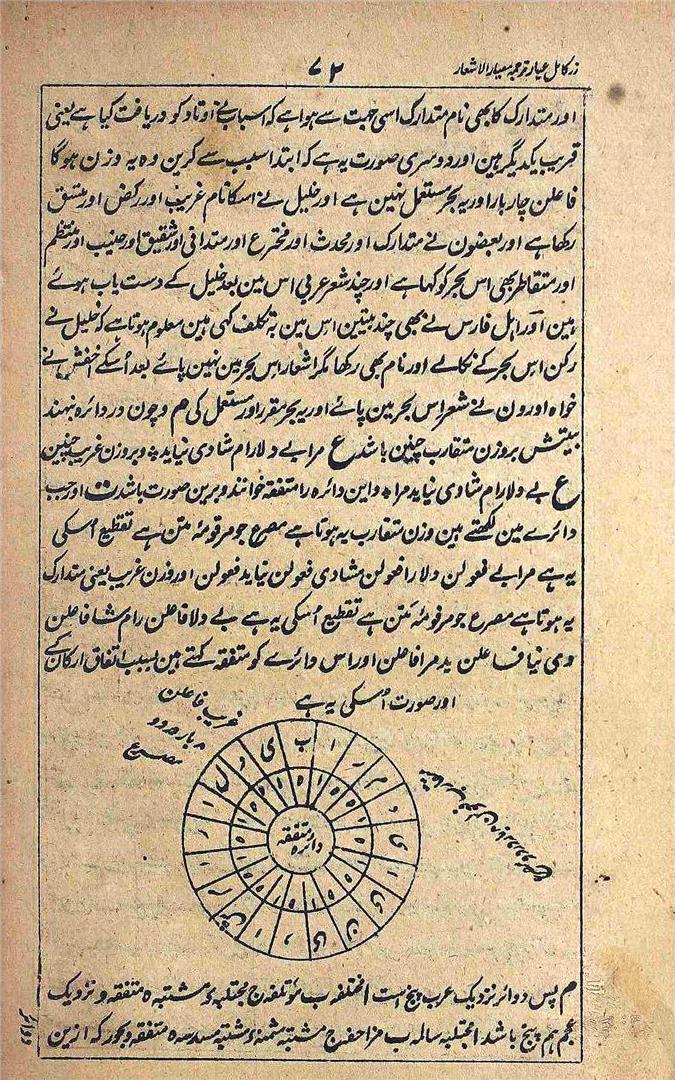 زر کامل عیار ترجمہ معیار الاشعار ۷۲
اور متدارک کا بھی نام متدارک اسی جہت سے ہوا ہے کہ اسباب نے اوتاد کو دریافت کیا ہے یعنی
قریب یکدیگر ہین اور دوسری صورت یہ ہے کہ ابتدا سبب سے کرین وہ یہ وزن ہوگا
فاعلن چار بار اور یہ بحر مستعمل نہین ہے اور خلیل نے اسکا نام غریب اور رکض اور متسق
رکھا ہے اور بعضون نے متدارک اور محدث اور مخترع اور متدانی اور شقیق اور منتظم
اور متقاطر بھی اس بحر کو کہا ہے اور چند شعر عربی اس مین بعد خلیل کے دست یاب ہوئے
ہین اور اہل فارس نے بھی چند بیتین اس مین بہ تکلف کہی ہین معلوم ہوتا ہے کہ خلیل نے
رکن اس بحر کے نکالے اور نام بھی رکھا مگر اشعار اس بحر مین نہین پائے بعد اُسکے اخفش نے
خواہ اورون نے شعر اس بحر مین پائے اور یہ بحر مقرر اور مستعمل کی م و چون در دائرہ نہند
بیتش بروزن متقارب چنین باشد ع مرا بے دلارام شادی نیاید و بروزن غریب چنین
ع بے دلارام شادی نیاید مرا و این دائرہ را متفقہ خوانند و برین صورت باشد ت اور جب
دائرے مین لکھتے ہین وزن متقارب یہ ہوتا ہے مصرع جو مرقومۂ متن ہے تقطیع اُسکی
یہ ہے مرا بے فعولن دلارا فعولن مشادی فعولن نیاید فعولن اور وزن غریب یعنی متدارک
یہ ہوتا ہے مصرع جو مرقومۂ متن ہے تقطیع اُسکی یہ ہے بے دلا فاعلن رام شا فاعلن
دی نیا فاعلن ید مرا فاعلن اور اس دائرے کو متفقہ کہتے ہین بسبب اتفاق ارکان کے
اور صورت اُسکی یہ ہے
غریب فاعلن
۸ بار در دو
مصرع
دائرہ متفقہ
م پس دوائر نزدیک عرب پنج است ا مختلفہ ب مؤتلفہ ج مجتلبہ د مشتبہ ہ متفقہ و نزدیک
عجم ہم پنج باشد ا مجتلبہ سالمہ ب مزاحفہ ج مشتبہ مثمنہ د مشتبہ مسدسہ ہ متفقہ و بحور کہ ازین
دوائر